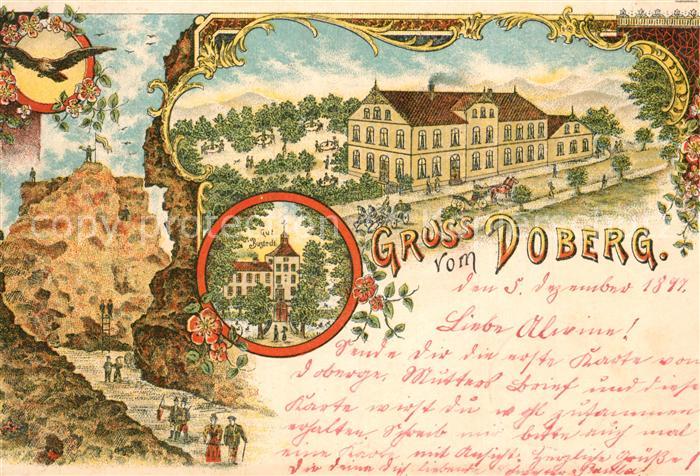 Gut
Bustedt
GRUSS vom DOBERG.
den 5. Dezember 1897.
Liebe Alwine!
Sende Dir die erste Karte vom
Doberge. Mutters Brief und diese
Karte wirst Du wohl zusammen
erhalten. Schreib mir bitte auch mal
eine Karte mit Ansicht. Herzliche Grüße
Dir deine Dich liebende